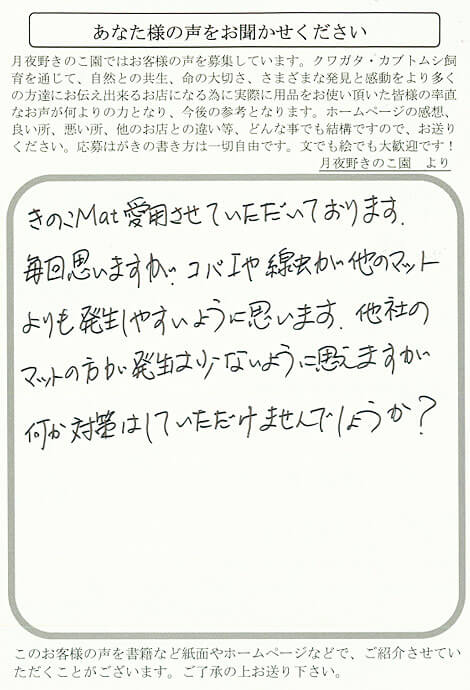 あなた様の声をお聞かせください
月夜野きのこ園ではお客様の声を募集しています。クワガタ・カブトムシ飼
育を通じて、自然との共生、命の大切さ、さまざまな発見と感動をより多く
の方達にお伝え出来るお店になる為に実際に用品をお使い頂いた皆様の率直
なお声が何よりの力となり、今後の参考となります。ホームページの感想、
良い所、悪い所、他のお店との違い等、どんな事でも結構ですので、お送り
ください。応募はがきの書き方は一切自由です。文でも絵でも大歓迎です！
月夜野きのこ園　より
きのこMat愛用させていただいております.
毎回思いますが、コバエや線虫が他のマット
よりも発生しやすいように思います. 他社の
マットの方が発生は少ないように思えますが
何か対策はしていただけませんでしょうか？
このお客様の声を書籍など紙面やホームページなどで、ご紹介させてい
ただくことがございます。ご了承の上お送り下さい。